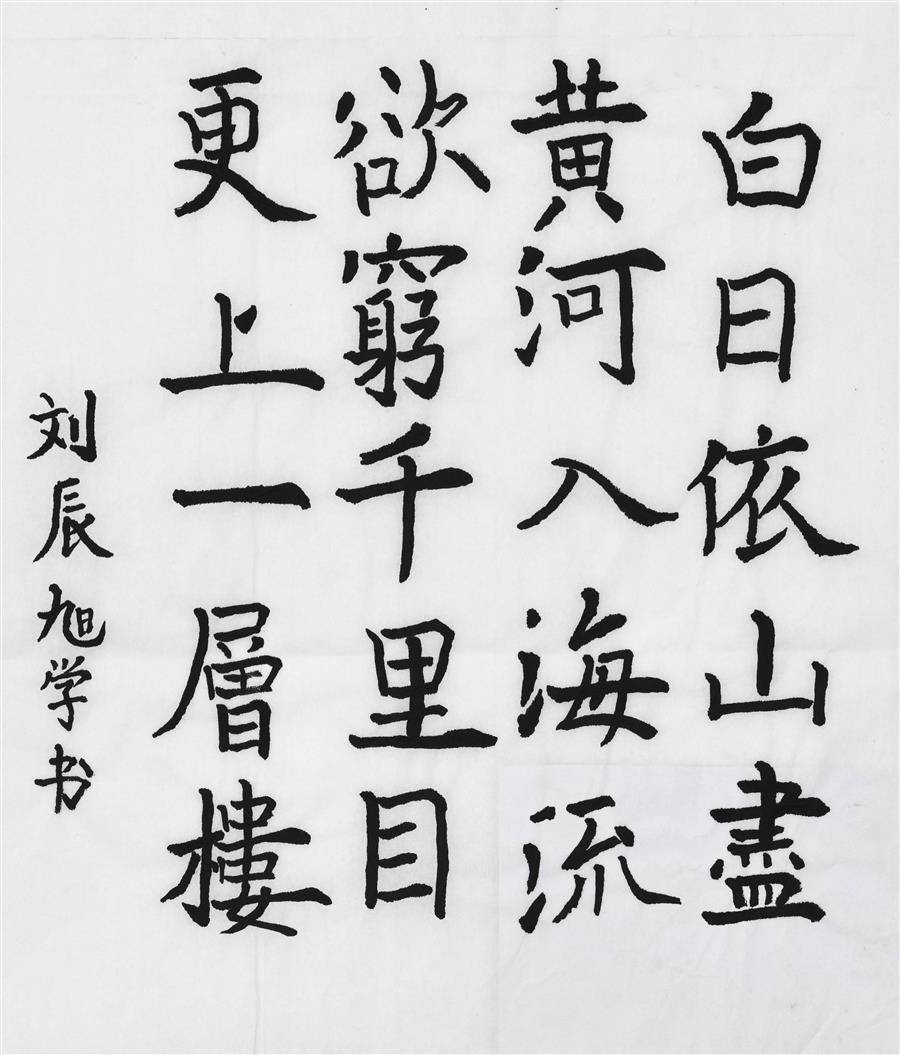 白日依山盡
黄河入海流
欲窮千里目
更上一層樓
刘辰旭学书